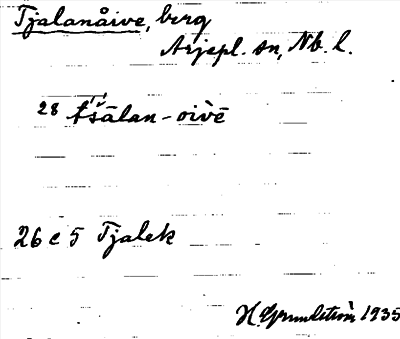 Tjalanåive, berg
Arjepl. sn, Nb. l.
28 t́šālan-oivē
26 c 5 Tjalek
H. Grundström 1935